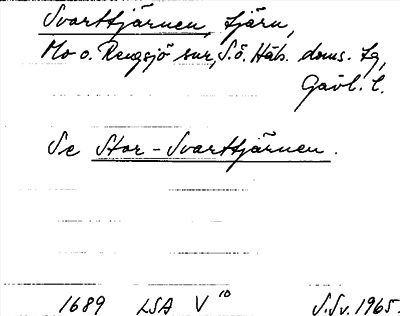 Svarttjärnen, tjärn,
Mo o. Rengsjö snr, S.ö. Häls. doms. tg,
Gävl. l.
Se Stor-Svarttjärnen.
1689 LSA V 10 S.Sv. 1965.